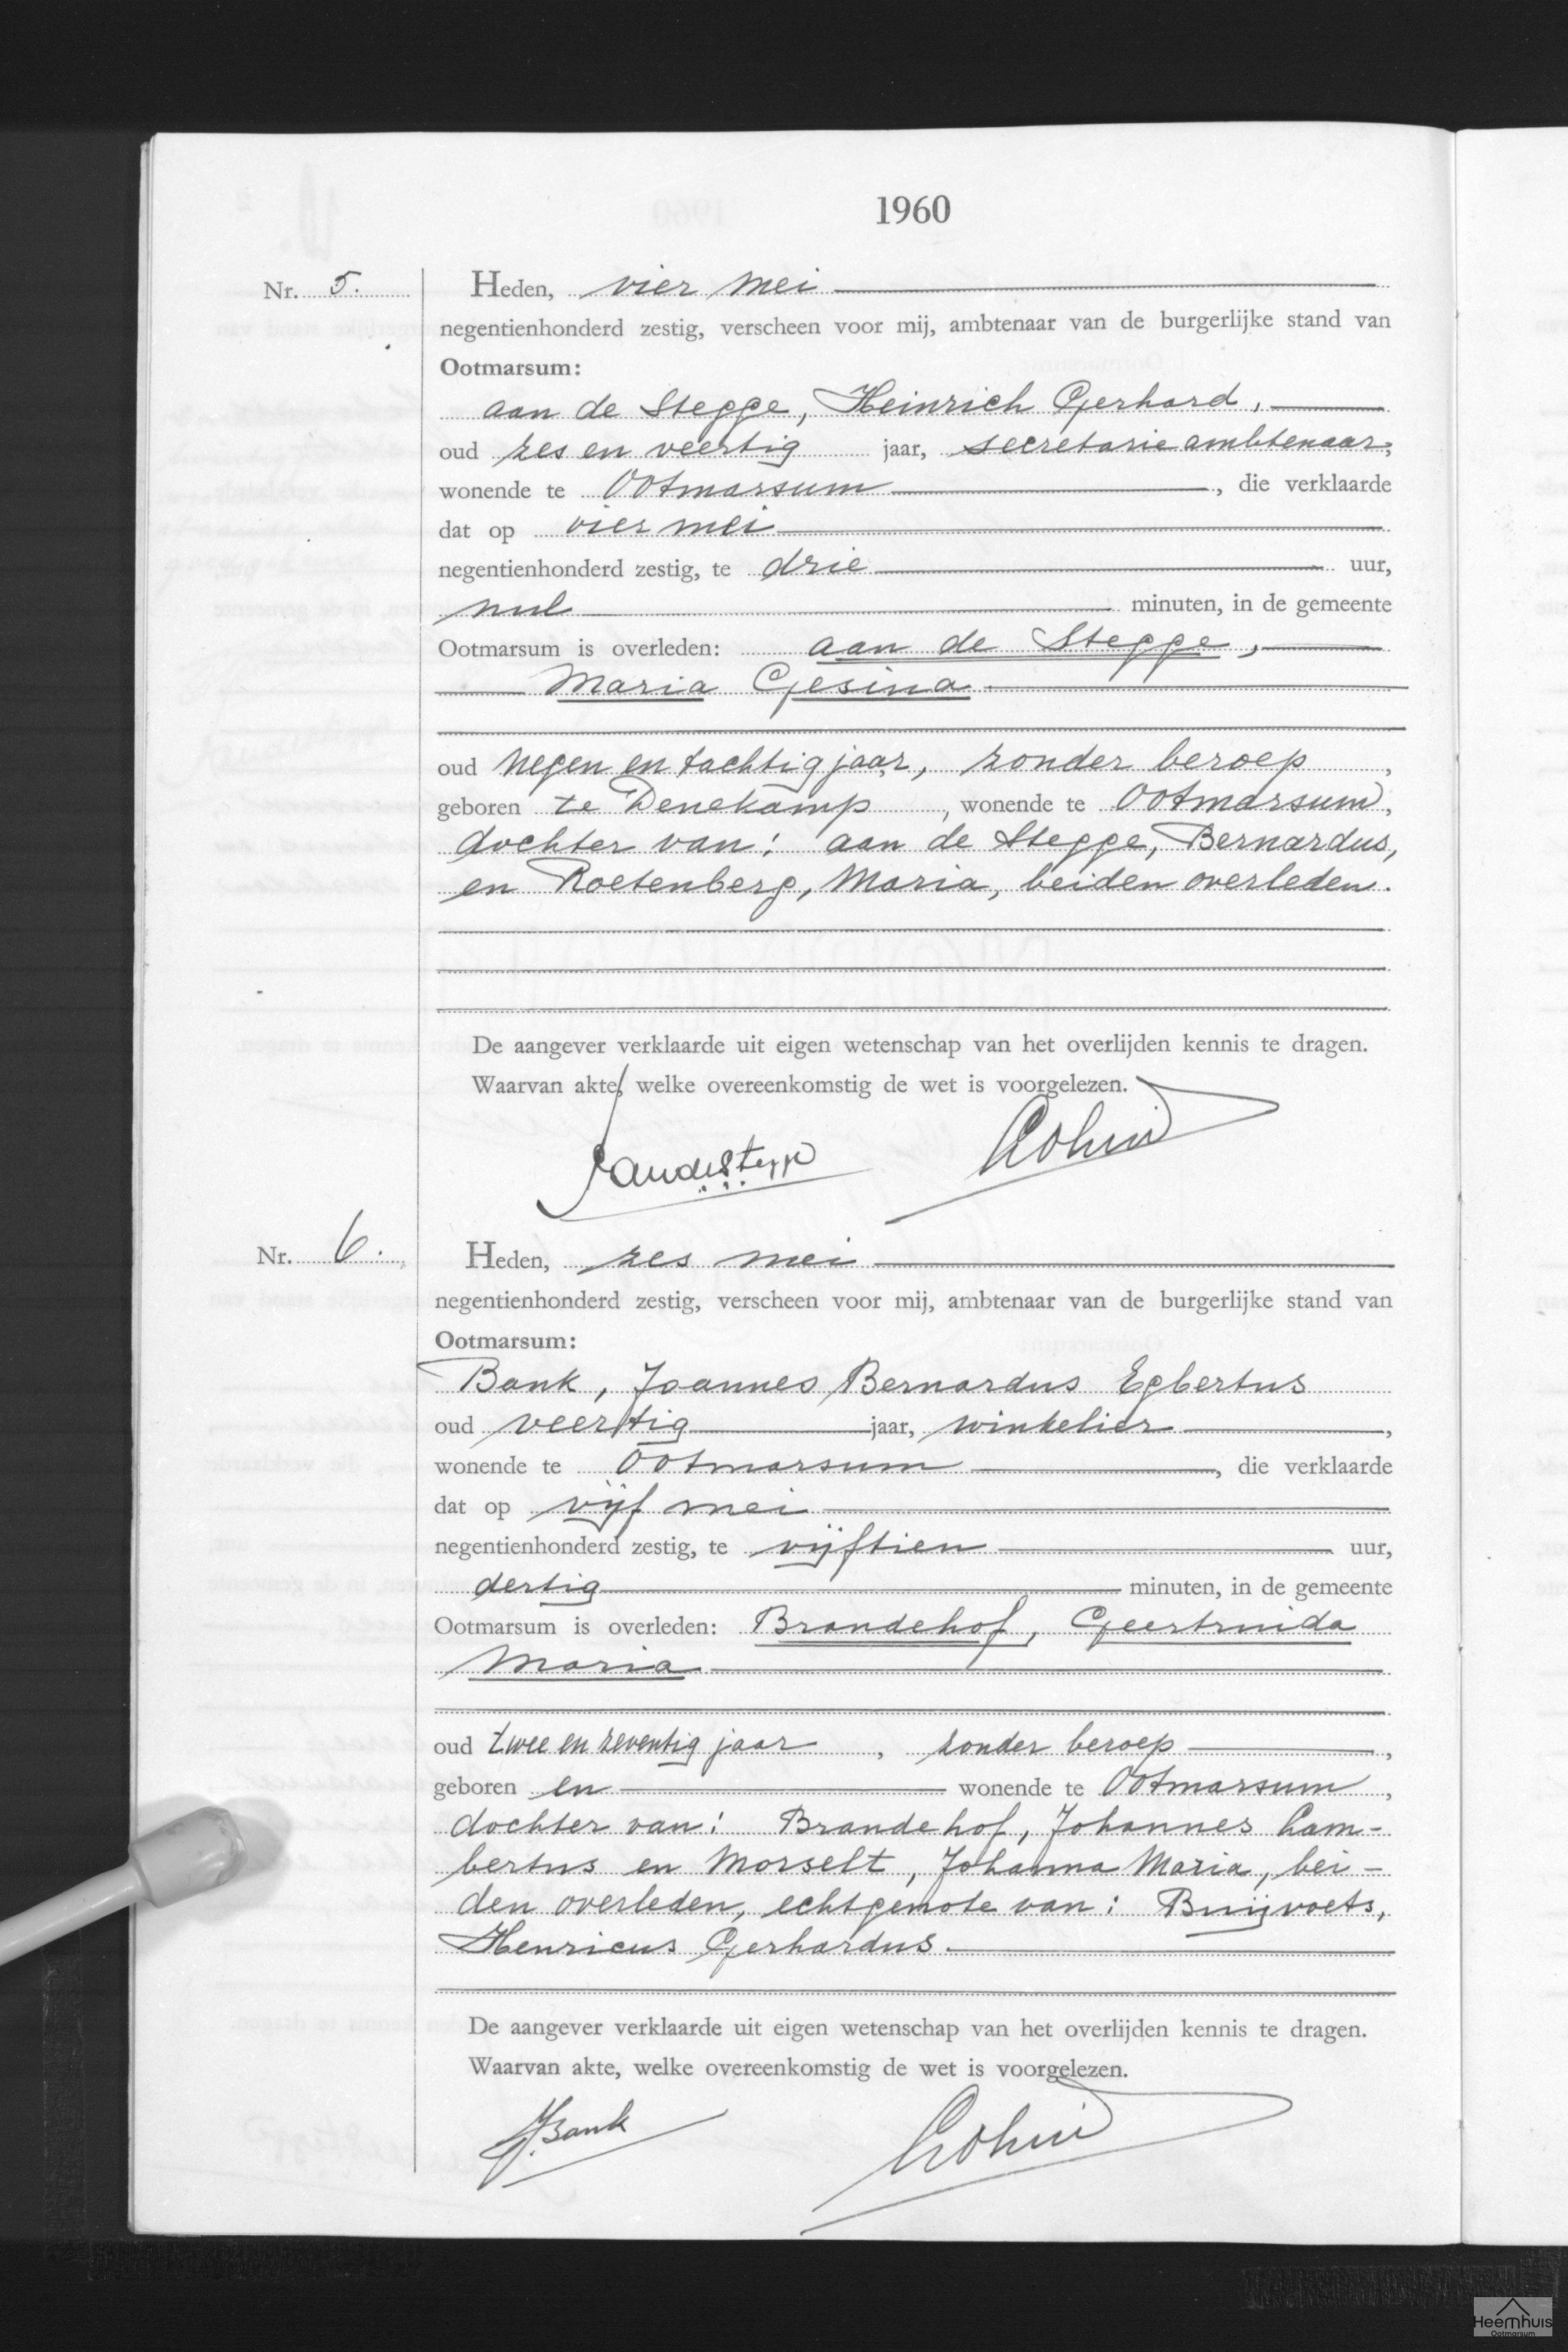 1960
Nr. 5.
Heden, vier mei
negentienhonderd zestig, verscheen voor mij, ambtenaar van de burgerlijke stand van
Ootmarsum:
aan de Stegge, Heinrich Gerhard,
oud zes en veertig jaar, secretarie ambtenaar,
wonende te Ootmarsum, die verklaarde
dat op vier mei
negentienhonderd zestig, te drie uur,
nul minuten, in de gemeente
Ootmarsum is overleden: aan de Stegge,
Maria Gesina
oud negen en tachtig jaar, zonder beroep,
geboren te Denekamp, wonende te Ootmarsum,
dochter van: aan de Stegge, Bernardus,
en Roetenberg, Maria, beiden overleden.
De aangever verklaarde uit eigen wetenschap van het overlijden kennis te dragen.
Waarvan akte, welke overeenkomstig de wet is voorgelezen.
Nr. 6.
Heden, zes mei
negentienhonderd zestig, verscheen voor mij, ambtenaar van de burgerlijke stand van
Ootmarsum:
Bank, Joannes Bernardus Egbertus
oud veertig jaar, winkelier,
wonende te Ootmarsum, die verklaarde
dat op vijf mei
negentienhonderd zestig, te vijftien uur,
dertig minuten, in de gemeente
Ootmarsum is overleden: Brandehof, Geertruida
Maria
oud twee en zeventig jaar, zonder beroep,
geboren en wonende te Ootmarsum,
dochter van: Brandehof, Johannes Lam-
bertus en Morselt, Johanna Maria, bei-
den overleden, echtgenote van: Buijvoets,
Henricus Gerhardus.
De aangever verklaarde uit eigen wetenschap van het overlijden kennis te dragen.
Waarvan akte, welke overeenkomstig de wet is voorgelezen.
JBank
Heemhuis
Ootmarsum